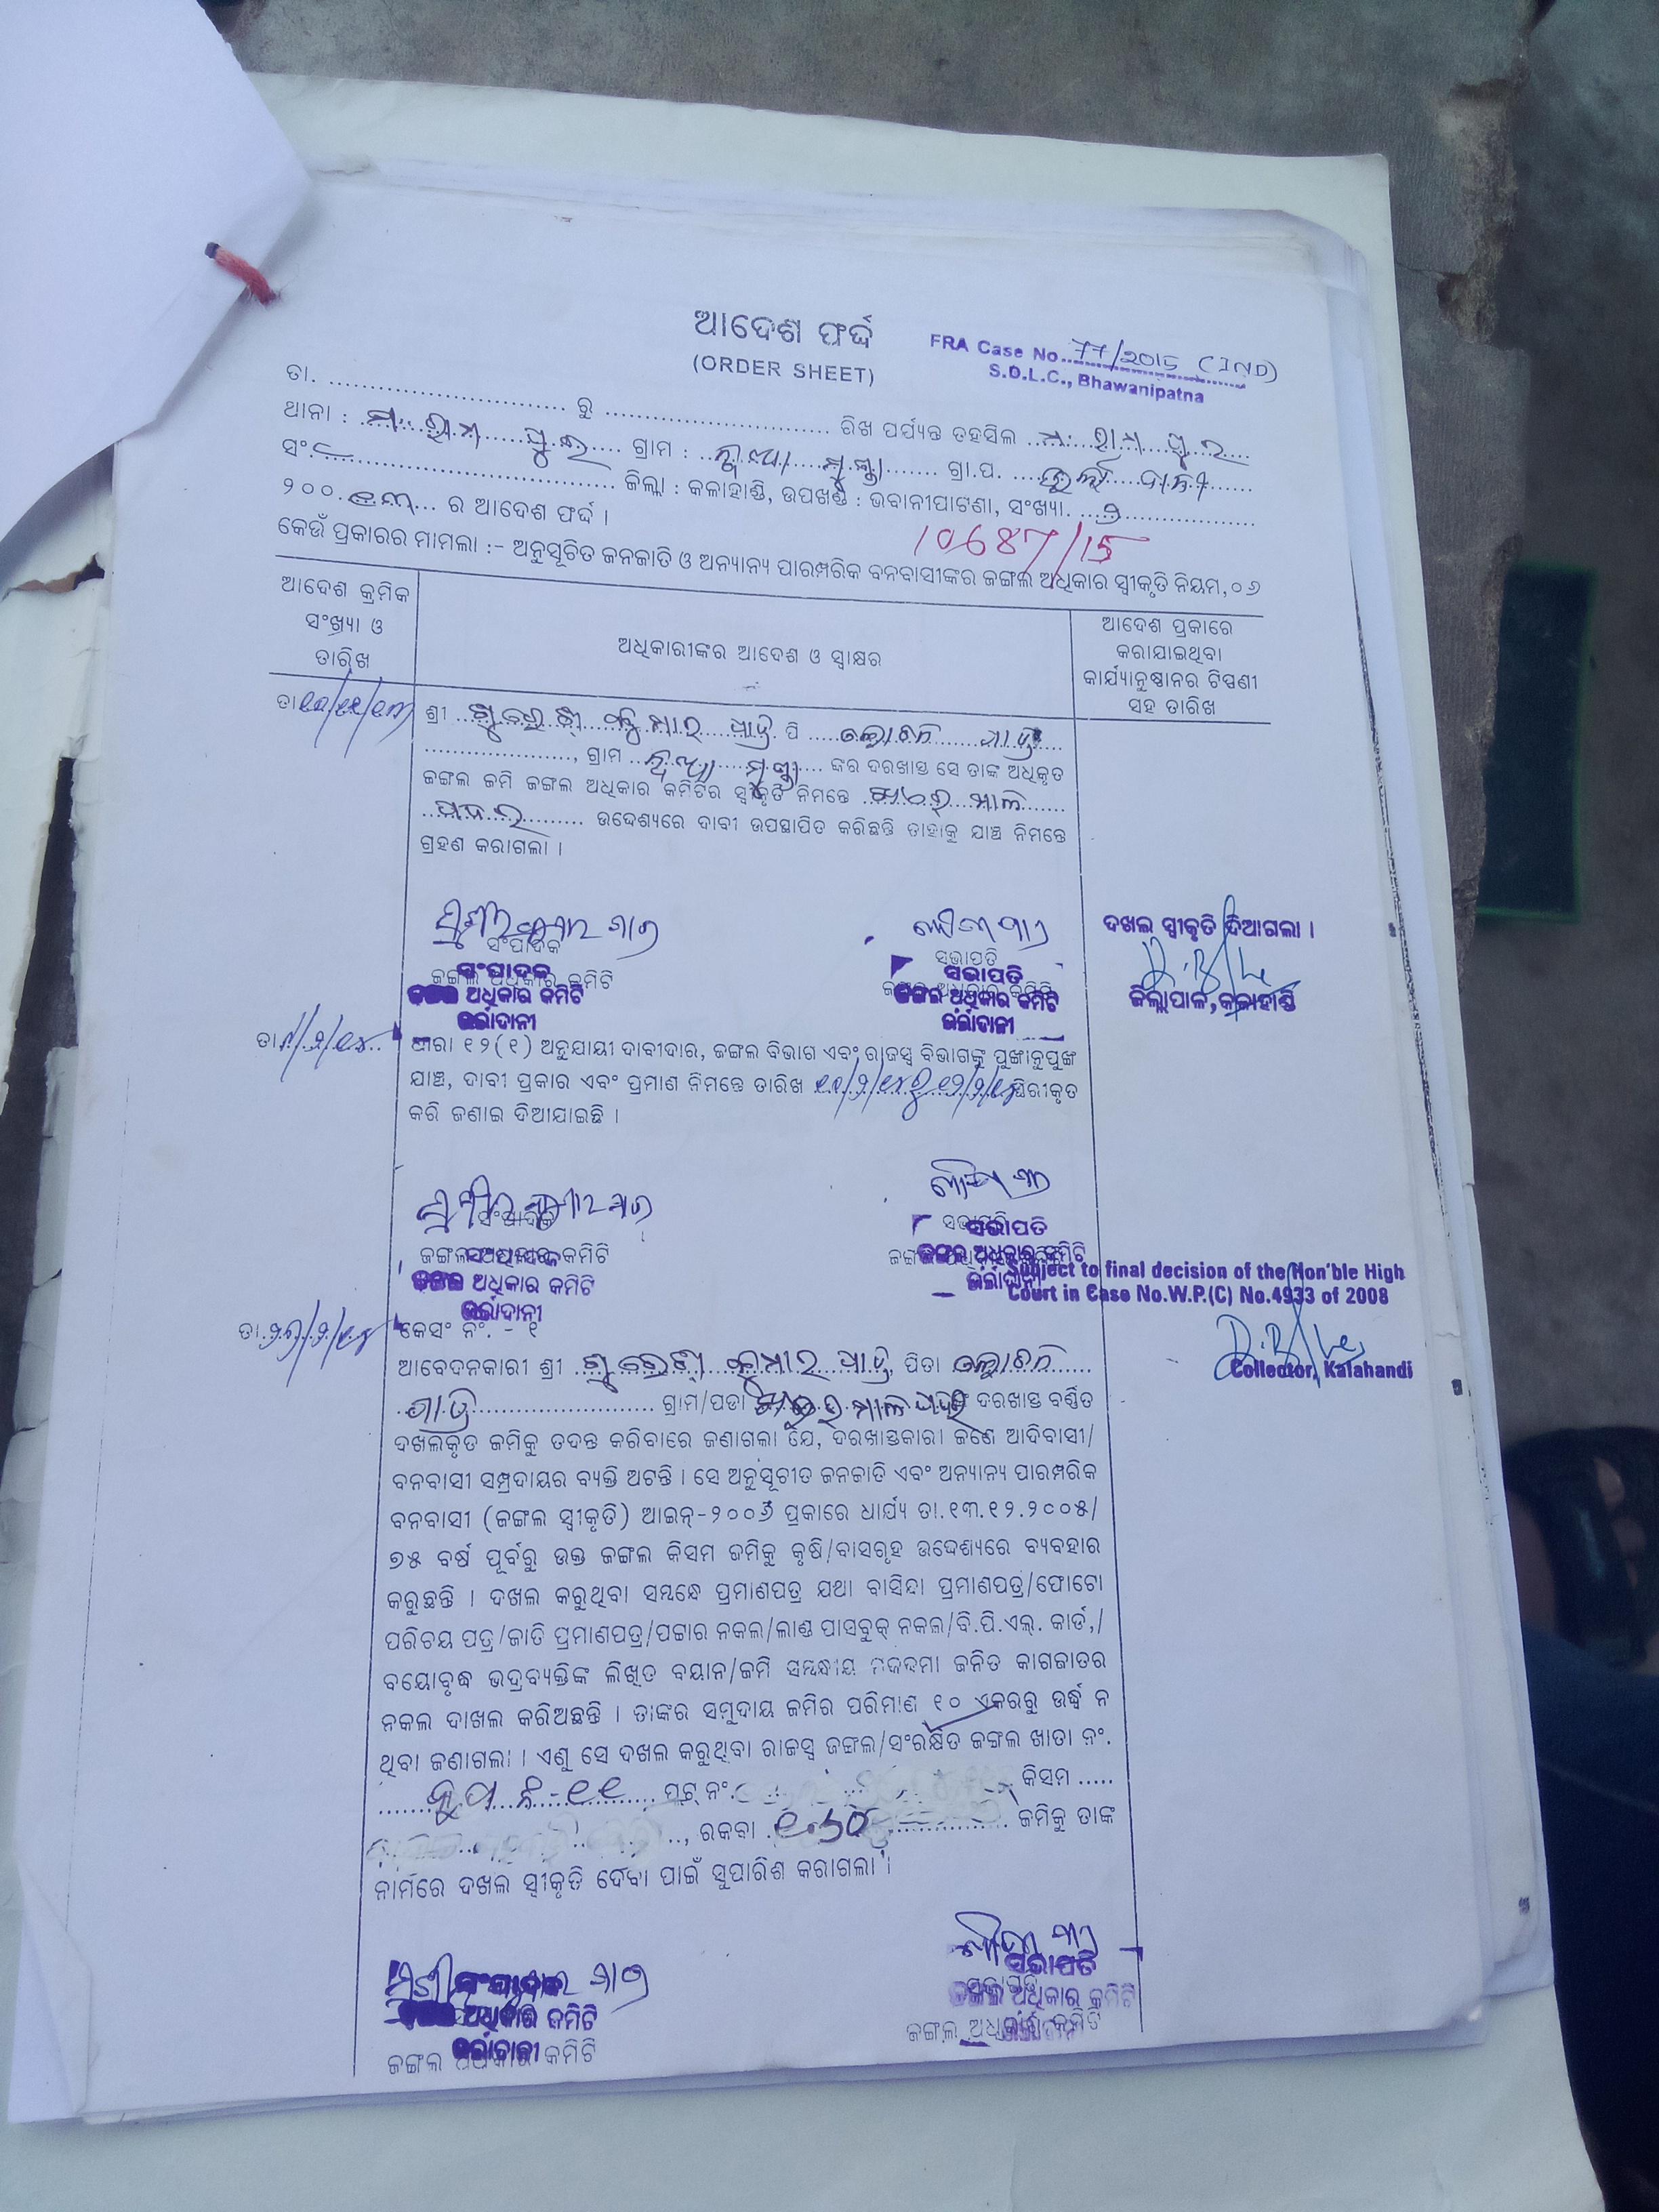 ଆଦେଶ ଫର୍ଦ୍ଦ
(ORDER SHEET)
FRA Case No. 77/2015 (IND)
S.D.L.C., Bhawanipatna
ତା. ........ ରୁ ........ ରିଖ ପର୍ଯ୍ୟନ୍ତ ତହସିଲ ମ. ରାମପୁର
ଥାନା : ମ. ରାମପୁର ଗ୍ରାମ : ନୂଆମୁଣ୍ଡା ଗ୍ରା.ପ. ଉର୍ଲାଦାନୀ
ସଂ. ........ ଜିଲ୍ଲା : କଳାହାଣ୍ଡି, ଉପଖଣ୍ଡ : ଭବାନୀପାଟଣା, ସଂଖ୍ୟା. ୨
୨୦୦ ୧୩ ର ଆଦେଶ ଫର୍ଦ୍ଦ ।
10687/15
କେଉଁ ପ୍ରକାରର ମାମଲା :- ଅନୁସୂଚିତ ଜନଜାତି ଓ ଅନ୍ୟାନ୍ୟ ପାରମ୍ପରିକ ବନବାସୀଙ୍କର ଜଙ୍ଗଲ ଅଧିକାର ସ୍ୱୀକୃତି ନିୟମ,୦୬
ଆଦେଶ କ୍ରମିକ
ସଂଖ୍ୟା ଓ
ତାରିଖ
ଅଧିକାରୀଙ୍କର ଆଦେଶ ଓ ସ୍ୱାକ୍ଷର
ଆଦେଶ ପ୍ରକାରେ
କରାଯାଇଥିବା
କାର୍ଯ୍ୟାନୁଷ୍ଠାନର ଟିପ୍ପଣୀ
ସହ ତାରିଖ
ତା
ଶ୍ରୀ କୁମାର ମାଝି ପି ମାଝି
, ଗ୍ରାମ ନୂଆମୁଣ୍ଡା ଙ୍କର ଦରଖାସ୍ତ ସେ ତାଙ୍କ ଅଧିକୃତ
ଜଙ୍ଗଲ ଜମି ଜଙ୍ଗଲ ଅଧିକାର କମିଟିର ସ୍ୱୀକୃତି ନିମନ୍ତେ
ଉଦ୍ଦେଶ୍ୟରେ ଦାବୀ ଉପସ୍ଥାପିତ କରିଛନ୍ତି ତାହାକୁ ଯାଞ୍ଚ ନିମନ୍ତେ
ଗ୍ରହଣ କରାଗଲା ।
ସଂପାଦକ
ଜଙ୍ଗଲ ଅଧିକାର କମିଟି
ସଂପାଦକ
ଜଙ୍ଗଲ ଅଧିକାର କମିଟି
ଉର୍ଲାଦାନୀ
ସଭାପତି
ସଭାପତି
ଜଙ୍ଗଲ ଅଧିକାର କମିଟି
ଉର୍ଲାଦାନୀ
ଦଖଲ ସ୍ୱୀକୃତି ଦିଆଗଲା ।
ଜିଲ୍ଲାପାଳ, କଳାହାଣ୍ଡି
ତା
ଧାରା ୧୨(୧) ଅନୁଯାୟୀ ଦାବୀଦାର, ଜଙ୍ଗଲ ବିଭାଗ ଏବଂ ରାଜସ୍ୱ ବିଭାଗଙ୍କୁ ପୁଙ୍ଖାନୁପୁଙ୍ଖ
ଯାଞ୍ଚ, ଦାବୀ ପ୍ରକାର ଏବଂ ପ୍ରମାଣ ନିମନ୍ତେ ତାରିଖ ସ୍ଥିରୀକୃତ
କରି ଜଣାଇ ଦିଆଯାଇଛି ।
ସଂପାଦକ
ଜଙ୍ଗଲ ଅଧିକାର କମିଟି
ଜଙ୍ଗଲ ଅଧିକାର କମିଟି
ଉର୍ଲାଦାନୀ
ସଭାପତି
ଜଙ୍ଗଲ ଅଧିକାର କମିଟି
ଉର୍ଲାଦାନୀ
Subject to final decision of the Hon'ble High
Court in Case No.W.P.(C) No.4933 of 2008
Collector, Kalahandi
ତା
କେସଂ ନଂ. - ୧
ଆବେଦନକାରୀ ଶ୍ରୀ କୁମାର ମାଝି, ପିତା
ମାଝି ଗ୍ରାମ/ପଡା ଙ୍କ ଦରଖାସ୍ତ ବର୍ଣ୍ଣିତ
ଦଖଲକୃତ ଜମିକୁ ତଦନ୍ତ କରିବାରେ ଜଣାଗଲା ଯେ, ଦରଖାସ୍ତକାରୀ ଜଣେ ଆଦିବାସୀ/
ବନବାସୀ ସମ୍ପ୍ରଦାୟର ବ୍ୟକ୍ତି ଅଟନ୍ତି । ସେ ଅନୁସୂଚୀତ ଜନଜାତି ଏବଂ ଅନ୍ୟାନ୍ୟ ପାରମ୍ପରିକ
ବନବାସୀ (ଜଙ୍ଗଲ ସ୍ୱୀକୃତି) ଆଇନ୍-୨୦୦୬ ପ୍ରକାରେ ଧାର୍ଯ୍ୟ ତା.୧୩.୧୨.୨୦୦୫/
୭୫ ବର୍ଷ ପୂର୍ବରୁ ଉକ୍ତ ଜଙ୍ଗଲ କିସମ ଜମିକୁ କୃଷି/ବାସଗୃହ ଉଦ୍ଦେଶ୍ୟରେ ବ୍ୟବହାର
କରୁଛନ୍ତି । ଦଖଲ କରୁଥିବା ସମ୍ବନ୍ଧେ ପ୍ରମାଣପତ୍ର ଯଥା ବାସିନ୍ଦା ପ୍ରମାଣପତ୍ର/ଫୋଟୋ
ପରିଚୟ ପତ୍ର/ଜାତି ପ୍ରମାଣପତ୍ର/ପଟ୍ଟାର ନକଲ/ଲାଣ୍ଡ ପାସବୁକ୍ ନକଲ/ବି.ପି.ଏଲ୍. କାର୍ଡ,/
ବୟୋବୃଦ୍ଧ ଭଦ୍ରବ୍ୟକ୍ତିଙ୍କ ଲିଖିତ ବୟାନ/ଜମି ସମ୍ବନ୍ଧୀୟ ମକଦ୍ଦମା ଜନିତ କାଗଜାତର
ନକଲ ଦାଖଲ କରିଅଛନ୍ତି । ତାଙ୍କର ସମୁଦାୟ ଜମିର ପରିମାଣ ୧୦ ଏକରରୁ ଉର୍ଦ୍ଧ୍ୱ ନ
ଥିବା ଜଣାଗଲା । ଏଣୁ ସେ ଦଖଲ କରୁଥିବା ରାଜସ୍ୱ ଜଙ୍ଗଲ/ସଂରକ୍ଷିତ ଜଙ୍ଗଲ ଖାତା ନଂ.
ପ୍ଲଟ୍ ନଂ. କିସମ .....
, ରକବା ଜମିକୁ ତାଙ୍କ
ନାମରେ ଦଖଲ ସ୍ୱୀକୃତି ଦେବା ପାଇଁ ସୁପାରିଶ କରାଗଲା ।
ସଂପାଦକ
ଅଧିକାର କମିଟି
ଉର୍ଲାଦାନୀ
ଜଙ୍ଗଲ ଅଧିକାର କମିଟି
ସଭାପତି
ଜଙ୍ଗଲ ଅଧିକାର କମିଟି
ଜଙ୍ଗଲ ଅଧିକାର କମିଟି